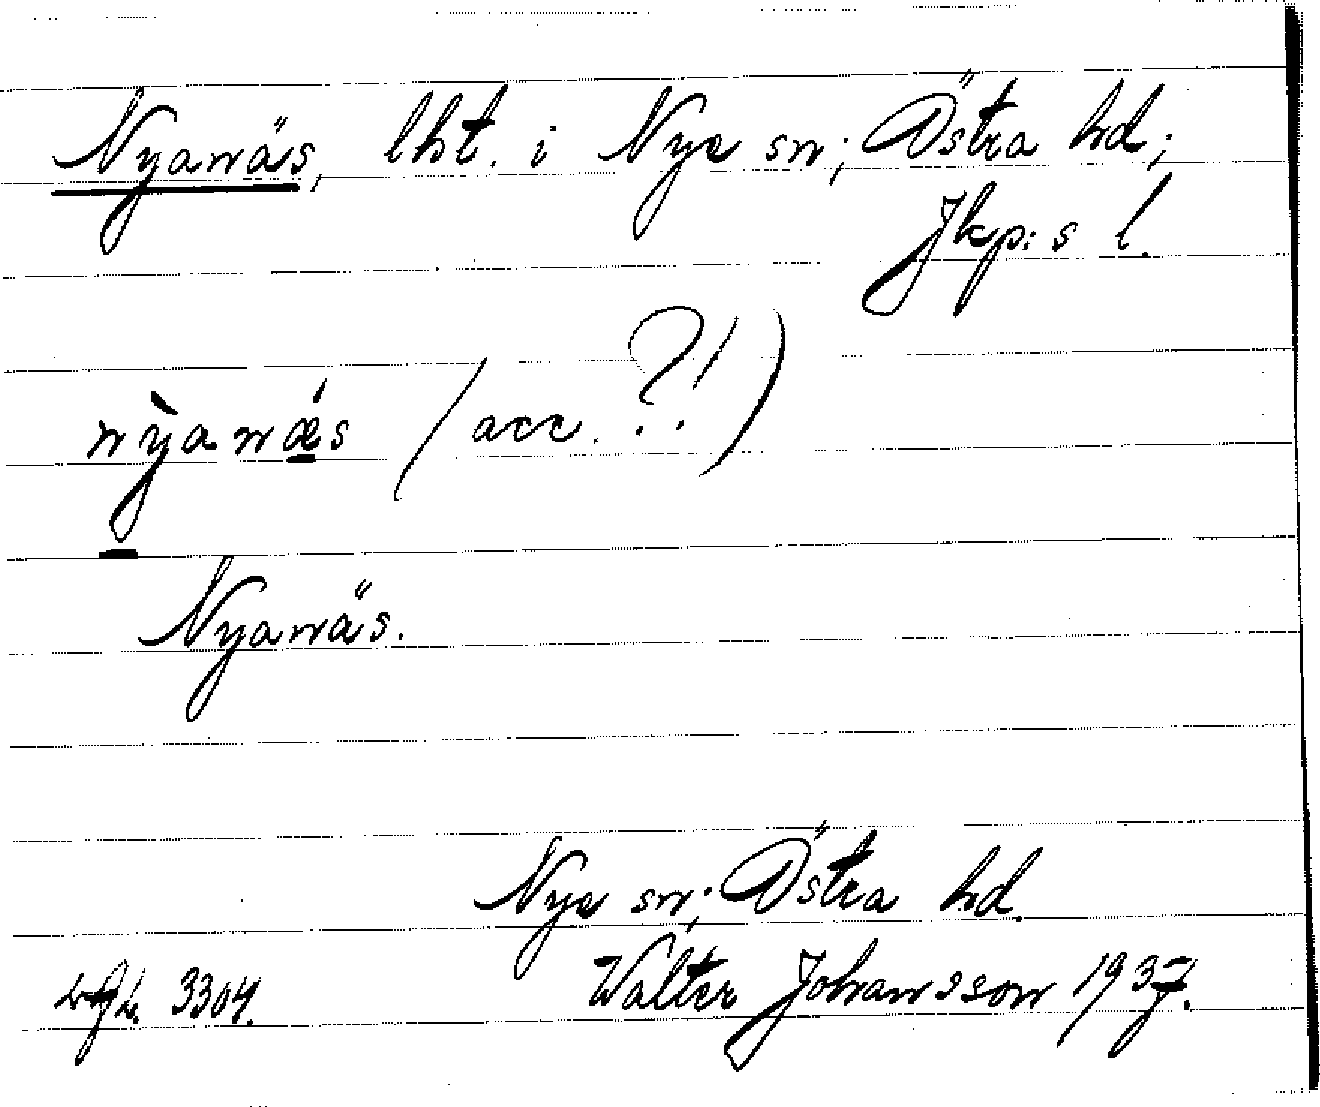 Nyanäs, lht. i Nye sn; Östra hd;
Jkp:s l.
nỳanǽs (acc. ?!)
Nyanäs.
Nye sn; Östra hd.
3304. Walter Johansson 1937.